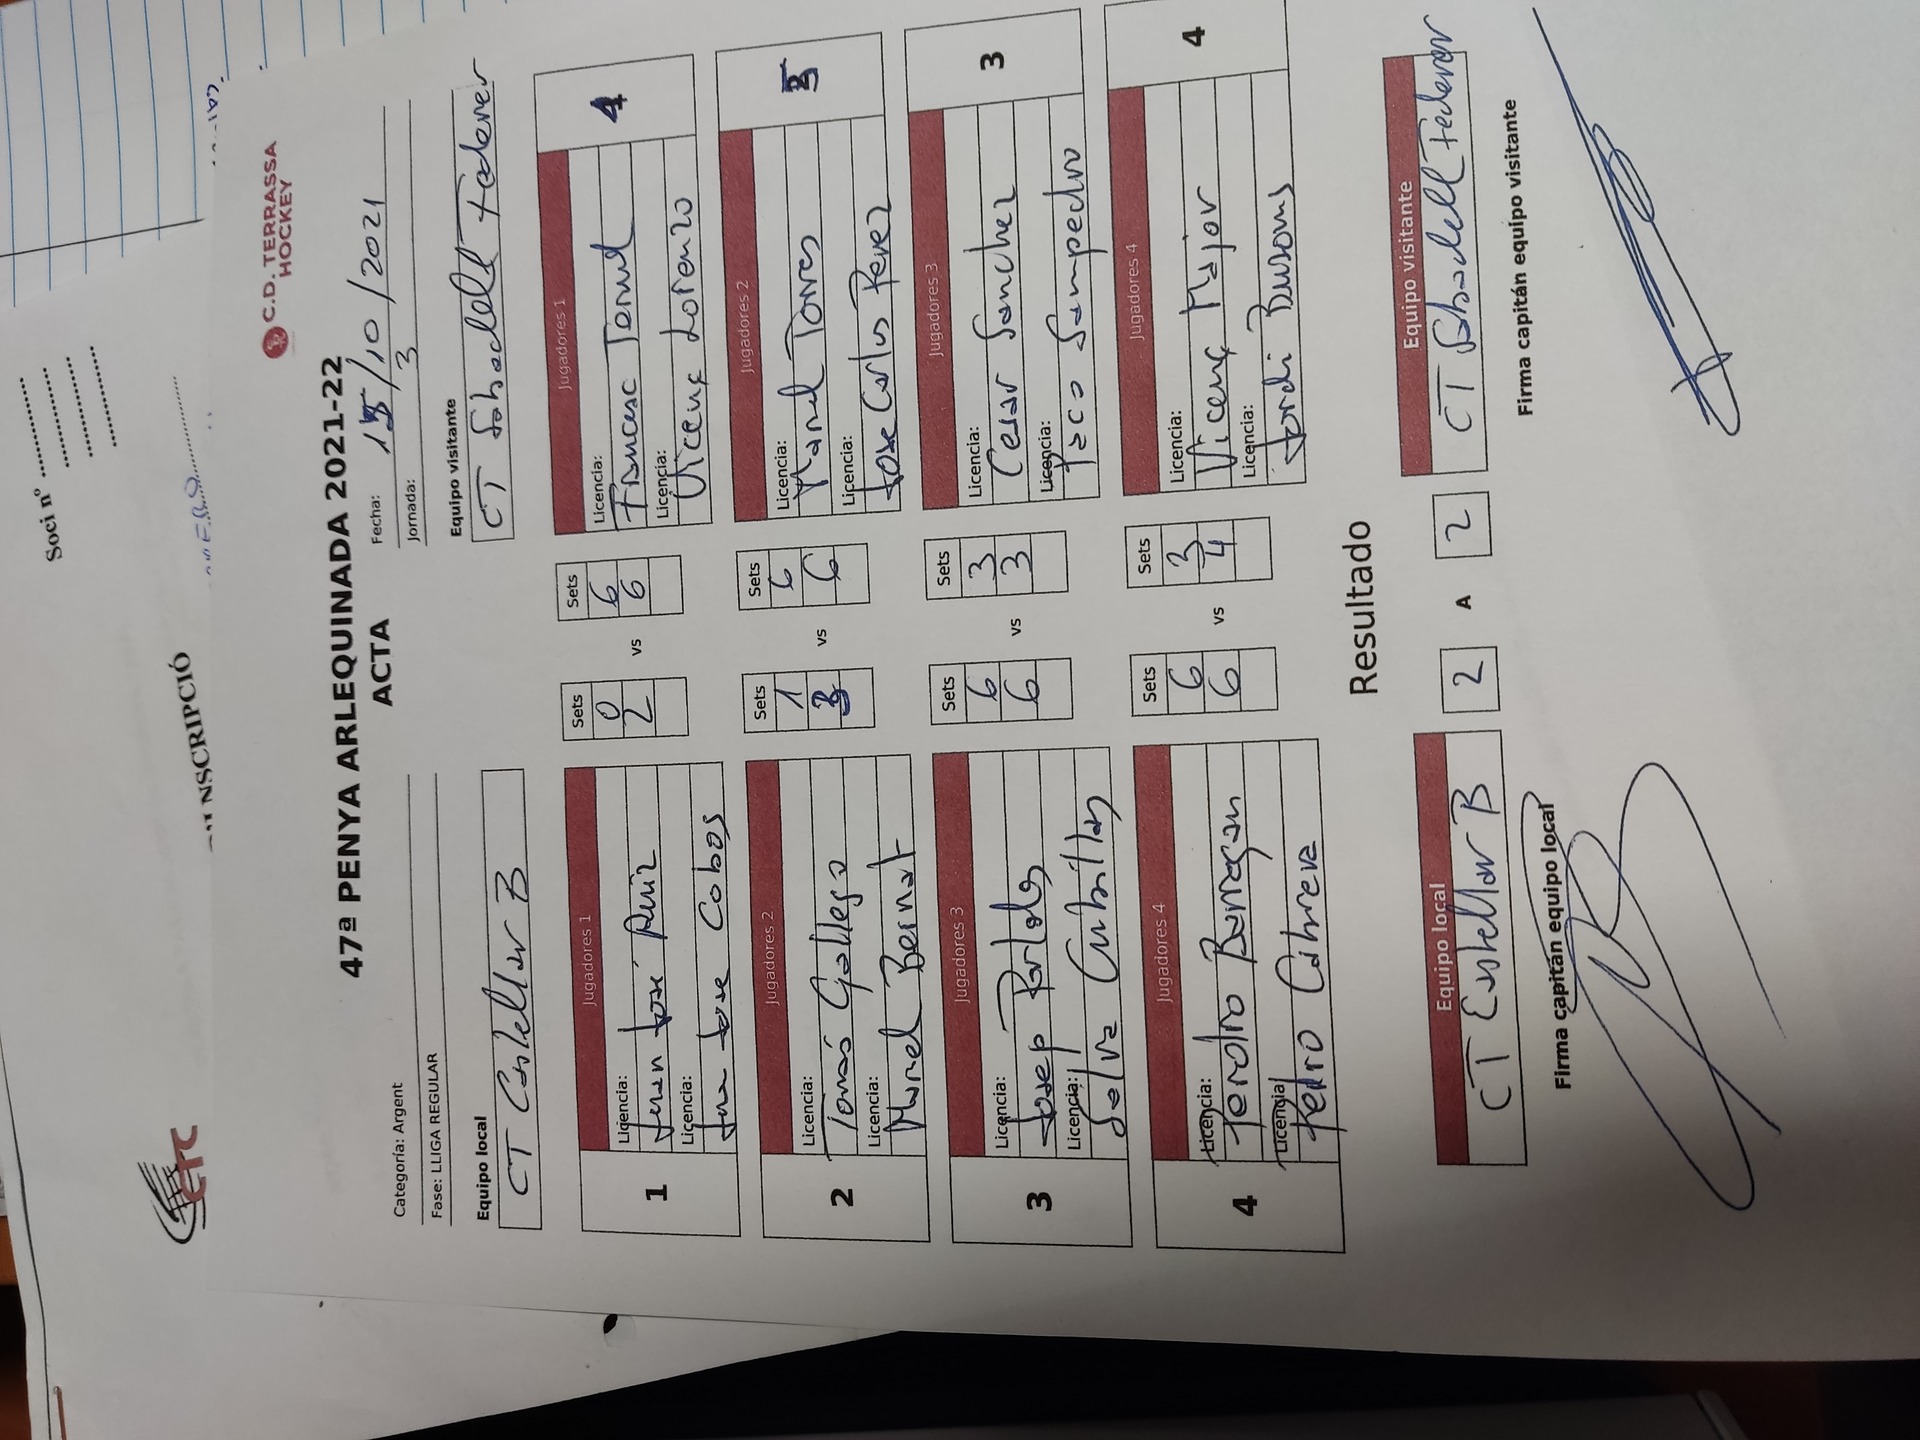 Soci nº
INSCRIPCIÓ
CTC
C.D. TERRASSA
HOCKEY
47ª PENYA ARLEQUINADA 2021-22
ACTA
Categoría: Argent
Fecha: 15/10/2021
Fase: LLIGA REGULAR
Jornada: 3
Equipo local
Equipo visitante
CT Castellar B
CT Sabadell Federer
1
Jugadores 1
Sets
Sets
Jugadores 1
1
Licencia:
0
6
Licencia:
Juan José Ruiz
2
vs
6
Francesc Teruel
Licencia:
Licencia:
Juan Jose Cobos
Vicenç Lorenzo
2
Jugadores 2
Sets
Sets
Jugadores 2
Licencia:
1
6
Licencia:
Tomás Gallego
3
vs
6
Manel Torres
Licencia:
Licencia:
Manel Bernat
Jose Carlos Perez
3
Jugadores 3
Sets
Sets
Jugadores 3
3
Licencia:
6
3
Licencia:
Josep Portoles
6
vs
3
Cesar Sanchez
Licencia:
Licencia:
Salva Cubillas
Paco Sampedro
4
Jugadores 4
Sets
Sets
Jugadores 4
4
Licencia:
6
3
Licencia:
Pedro Barragan
6
vs
4
Vicenç Major
Licencia
Licencia:
Pedro Cabrera
Jordi Busoms
Resultado
Equipo local
Equipo visitante
CT Castellar B
2 A 2
CT Sabadell Federer
Firma capitán equipo local
Firma capitán equipo visitante